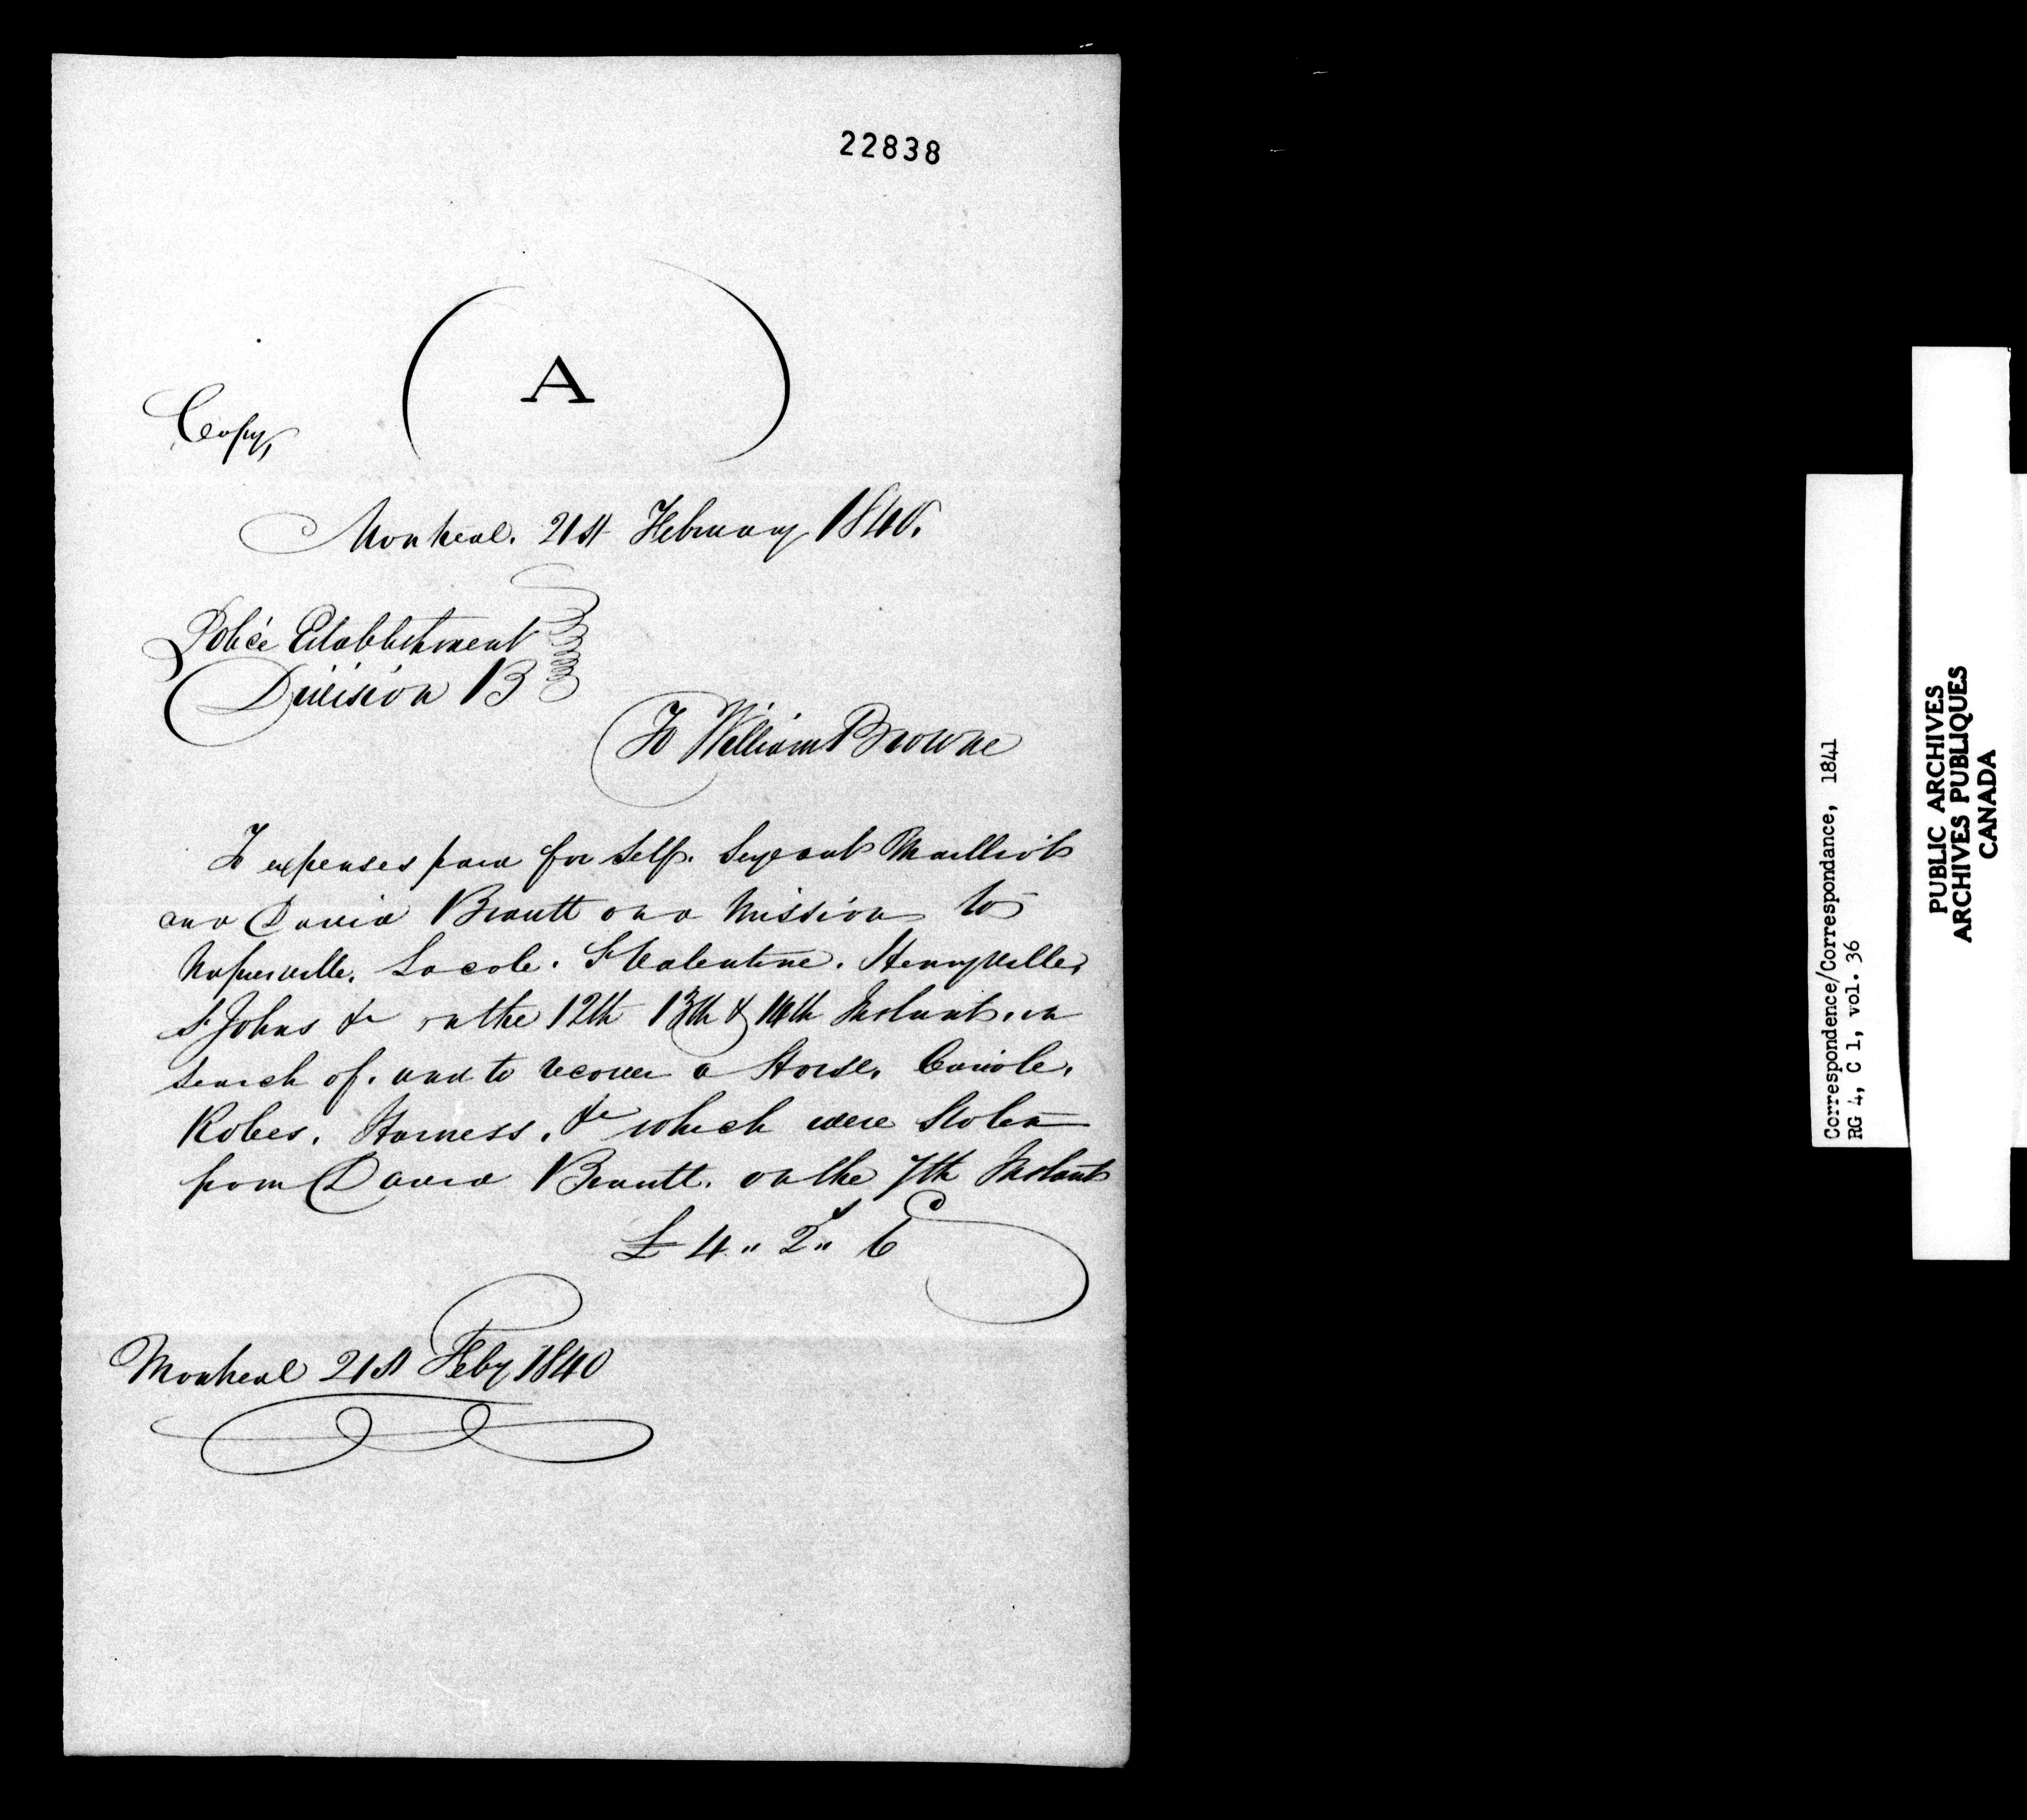 22838
( A )
Copy,
Montreal. 21st February 1840.
Police Establishment
Division B
To William Browne
To expenses paid for self. Sergeant Mailliot
and David Brautt on a Mission to
Napierville. Lacole. St Valentine. Henryville,
St Johns &c on the 12th 13th & 14th Instant. in
search of. and to recover a Horse. Cariole.
Robes. Harness. &c which were Stolen
from David Brautt. on the 7th Instant
£ 4 " 2s " 6
Montreal 21st Feby 1840
Correspondence/Correspondance, 1841
RG 4, C 1, vol. 36
PUBLIC ARCHIVES
ARCHIVES PUBLIQUES
CANADA